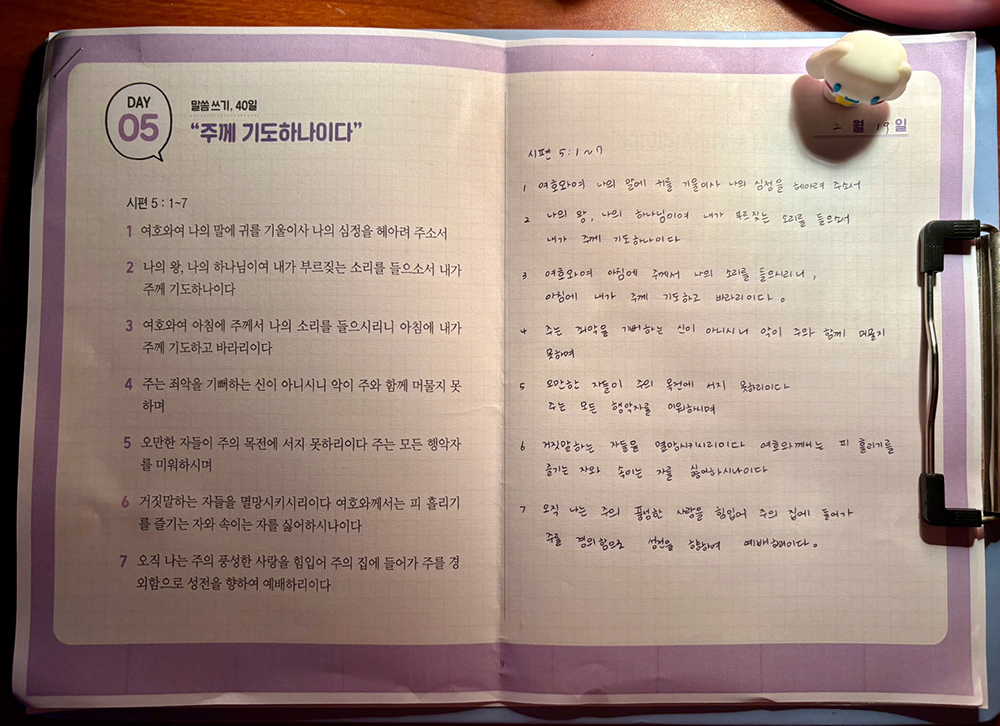 DAY
05
말씀 쓰기, 40일
“주께 기도하나이다”
시편 5 : 1~7
1 여호와여 나의 말에 귀를 기울이사 나의 심정을 헤아려 주소서
2 나의 왕, 나의 하나님이여 내가 부르짖는 소리를 들으소서 내가
주께 기도하나이다
3 여호와여 아침에 주께서 나의 소리를 들으시리니 아침에 내가
주께 기도하고 바라리이다
4 주는 죄악을 기뻐하는 신이 아니시니 악이 주와 함께 머물지 못
하며
5 오만한 자들이 주의 목전에 서지 못하리이다 주는 모든 행악자
를 미워하시며
6 거짓말하는 자들을 멸망시키시리이다 여호와께서는 피 흘리기
를 즐기는 자와 속이는 자를 싫어하시나이다
7 오직 나는 주의 풍성한 사랑을 힘입어 주의 집에 들어가 주를 경
외함으로 성전을 향하여 예배하리이다
2 월 19 일
시편 5 : 1~7
1 여호와여 나의 말에 귀를 기울이사 나의 심정을 헤아려 주소서
2 나의 왕, 나의 하나님이여 내가 부르짖는 소리를 들으소서
내가 주께 기도하나이다
3 여호와여 아침에 주께서 나의 소리를 들으시리니,
아침에 내가 주께 기도하고 바라리이다。
4 주는 죄악을 기뻐하는 신이 아니시니 악이 주와 함께 머물지
못하며
5 오만한 자들이 주의 목전에 서지 못하리이다
주는 모든 행악자를 미워하시며
6 거짓말하는 자들을 멸망시키시리이다 여호와께서는 피 흘리기를
즐기는 자와 속이는 자를 싫어하시나이다
7 오직 나는 주의 풍성한 사랑을 힘입어 주의 집에 들어가
주를 경외함으로 성전을 향하여 예배하리이다。
9